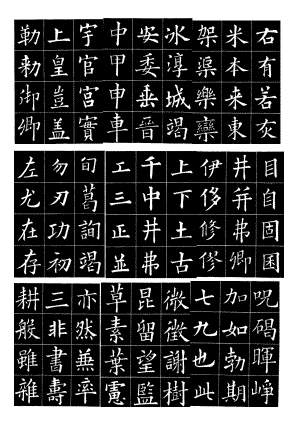 勅 上 宇 中 安 冰 架 米 右
勑 皇 官 甲 委 淳 渠 本 有
御 豈 宮 申 垂 城 樂 来 若
卿 盖 實 車 晉 竭 欒 東 灾
左 勿 旬 工 千 上 伊 井 目
尤 刃 菖 三 中 下 侈 并 自
在 功 詢 正 井 土 修 弗 固
存 初 竭 並 弗 古 僇 卿 困
耕 三 亦 草 昆 微 七 加 呪
般 非 然 素 留 徴 九 如 碣
雖 書 無 葉 望 謝 也 勃 暉
雜 壽 率 憲 監 樹 此 期 崢